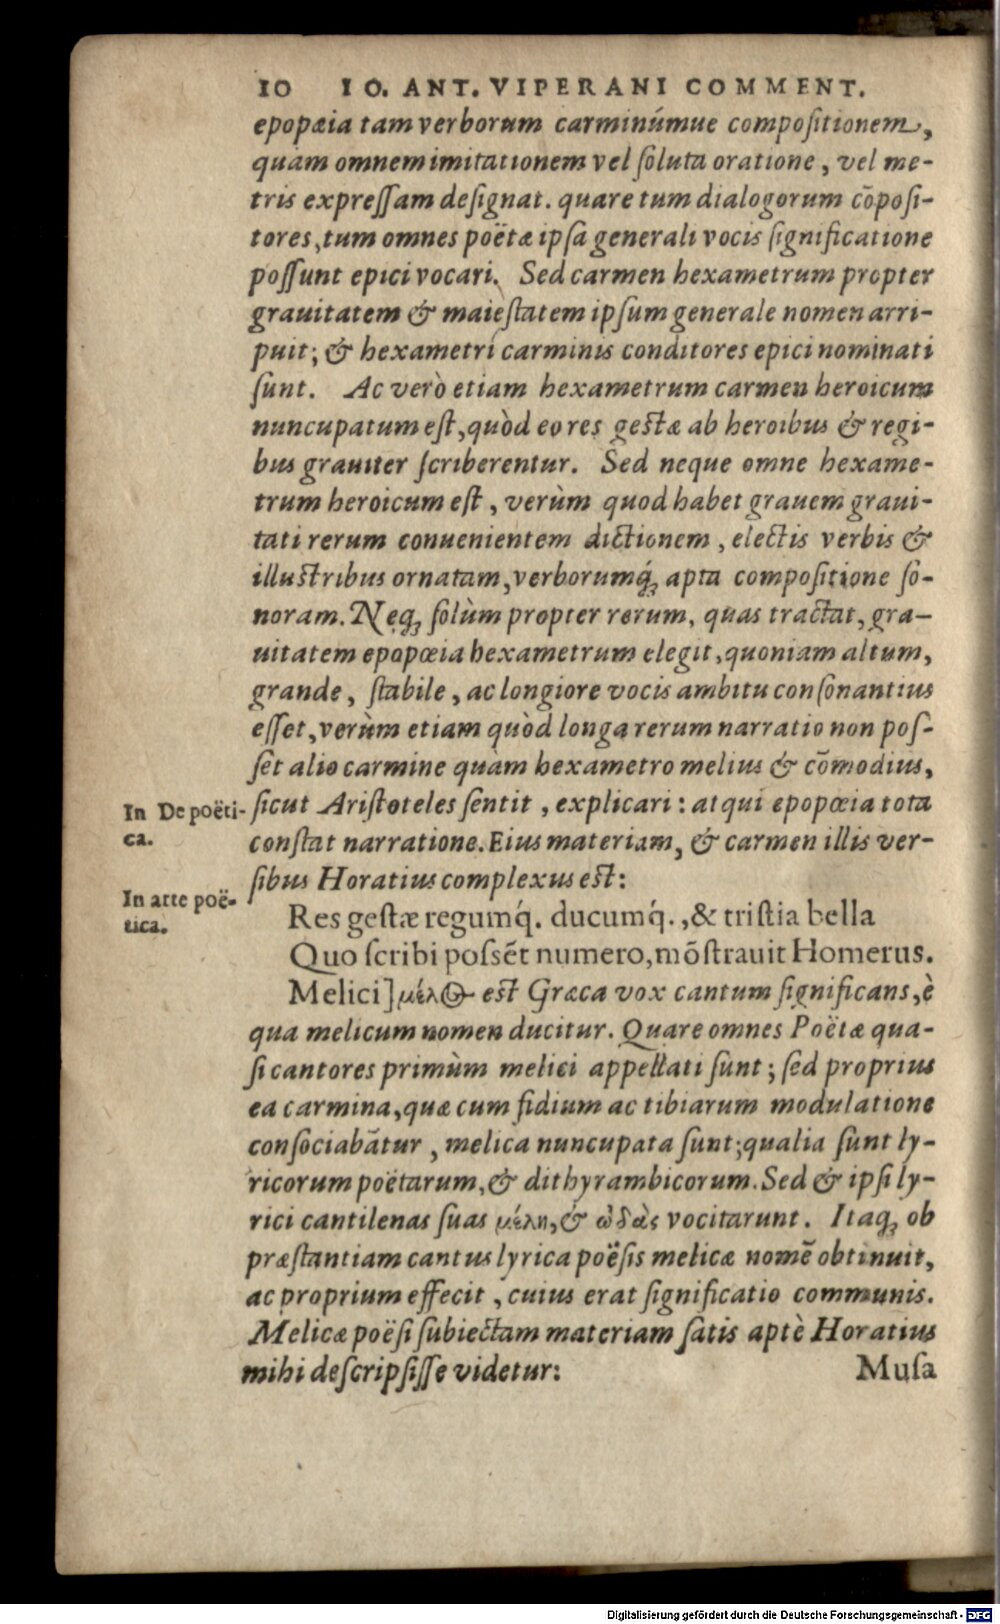 10 IO. ANT. VIPERANI COMMENT.
epopæia tam verborum carminúmue compoſitionem,
quàm omnem imitationem vel ſoluta oratione, vel me-
tris expreſſam deſignat. quare tum dialogorum cōpoſi-
tores, tum omnes poëtæ ipſa generali vocis ſignificatione
poſſunt epici vocari. Sed carmen hexametrum propter
grauitatem & maieſtatem ipſum generale nomen arri-
puit; & hexametri carminis conditores epici nominati
ſunt. Ac verò etiam hexametrum carmen heroicum
nuncupatum eſt, quòd eo res geſtæ ab heroibus & regi-
bus grauiter ſcriberentur. Sed neque omne hexame-
trum heroicum eſt, verùm quod habet grauem graui-
tati rerum conuenientem dictionem, electis verbis &
illuſtribus ornatam, verborumq́ꝫ apta compoſitione ſo-
noram. Neqꝫ ſolùm propter rerum, quas tractat, gra-
uitatem epopœia hexametrum elegit, quoniam altum,
grande, ſtabile, ac longiore vocis ambitu conſonantius
eſſet, verùm etiam quòd longa rerum narratio non poſ-
ſet alio carmine quàm hexametro melius & cōmodius,
In De poëti-
ca.
ſicut Ariſtoteles ſentit, explicari: atqui epopœia tota
conſtat narratione. Eius materiam, & carmen illis ver-
ſibus Horatius complexus eſt:
In arte poë-
tica.
Res geſtæ regumq́. ducumq́., & triſtia bella
Quo ſcribi poſsēt numero, mōſtrauit Homerus.
Melici] μέλος eſt Græca vox cantum ſignificans, è
qua melicum nomen ducitur. Quare omnes Poëtæ qua-
ſi cantores primùm melici appellati ſunt; ſed proprius
ea carmina, quæ cum fidium ac tibiarum modulatione
conſociabātur, melica nuncupata ſunt; qualia ſunt ly-
ricorum poëtarum, & dithyrambicorum. Sed & ipſi ly-
rici cantilenas ſuas μέλη, & ὠδὰς vocitarunt. Itaqꝫ ob
præſtantiam cantus lyrica poëſis melicæ nomē obtinuit,
ac proprium effecit, cuius erat ſignificatio communis.
Melicæ poëſi ſubiectam materiam ſatis aptè Horatius
mihi deſcripſiſſe videtur: Muſa
Digitalisierung gefördert durch die Deutsche Forschungsgemeinschaft - DFG